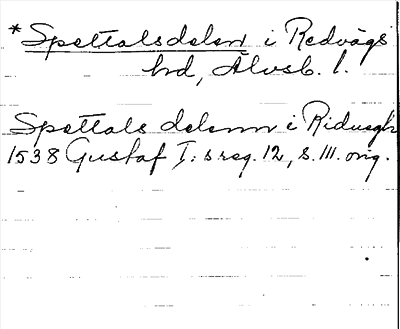 *Spettalsdelen i Redvägs
hd, Älvsb. l.
Spettals delenn i Riduegh
1538 Gustaf I:s reg. 12, s. 111. orig.